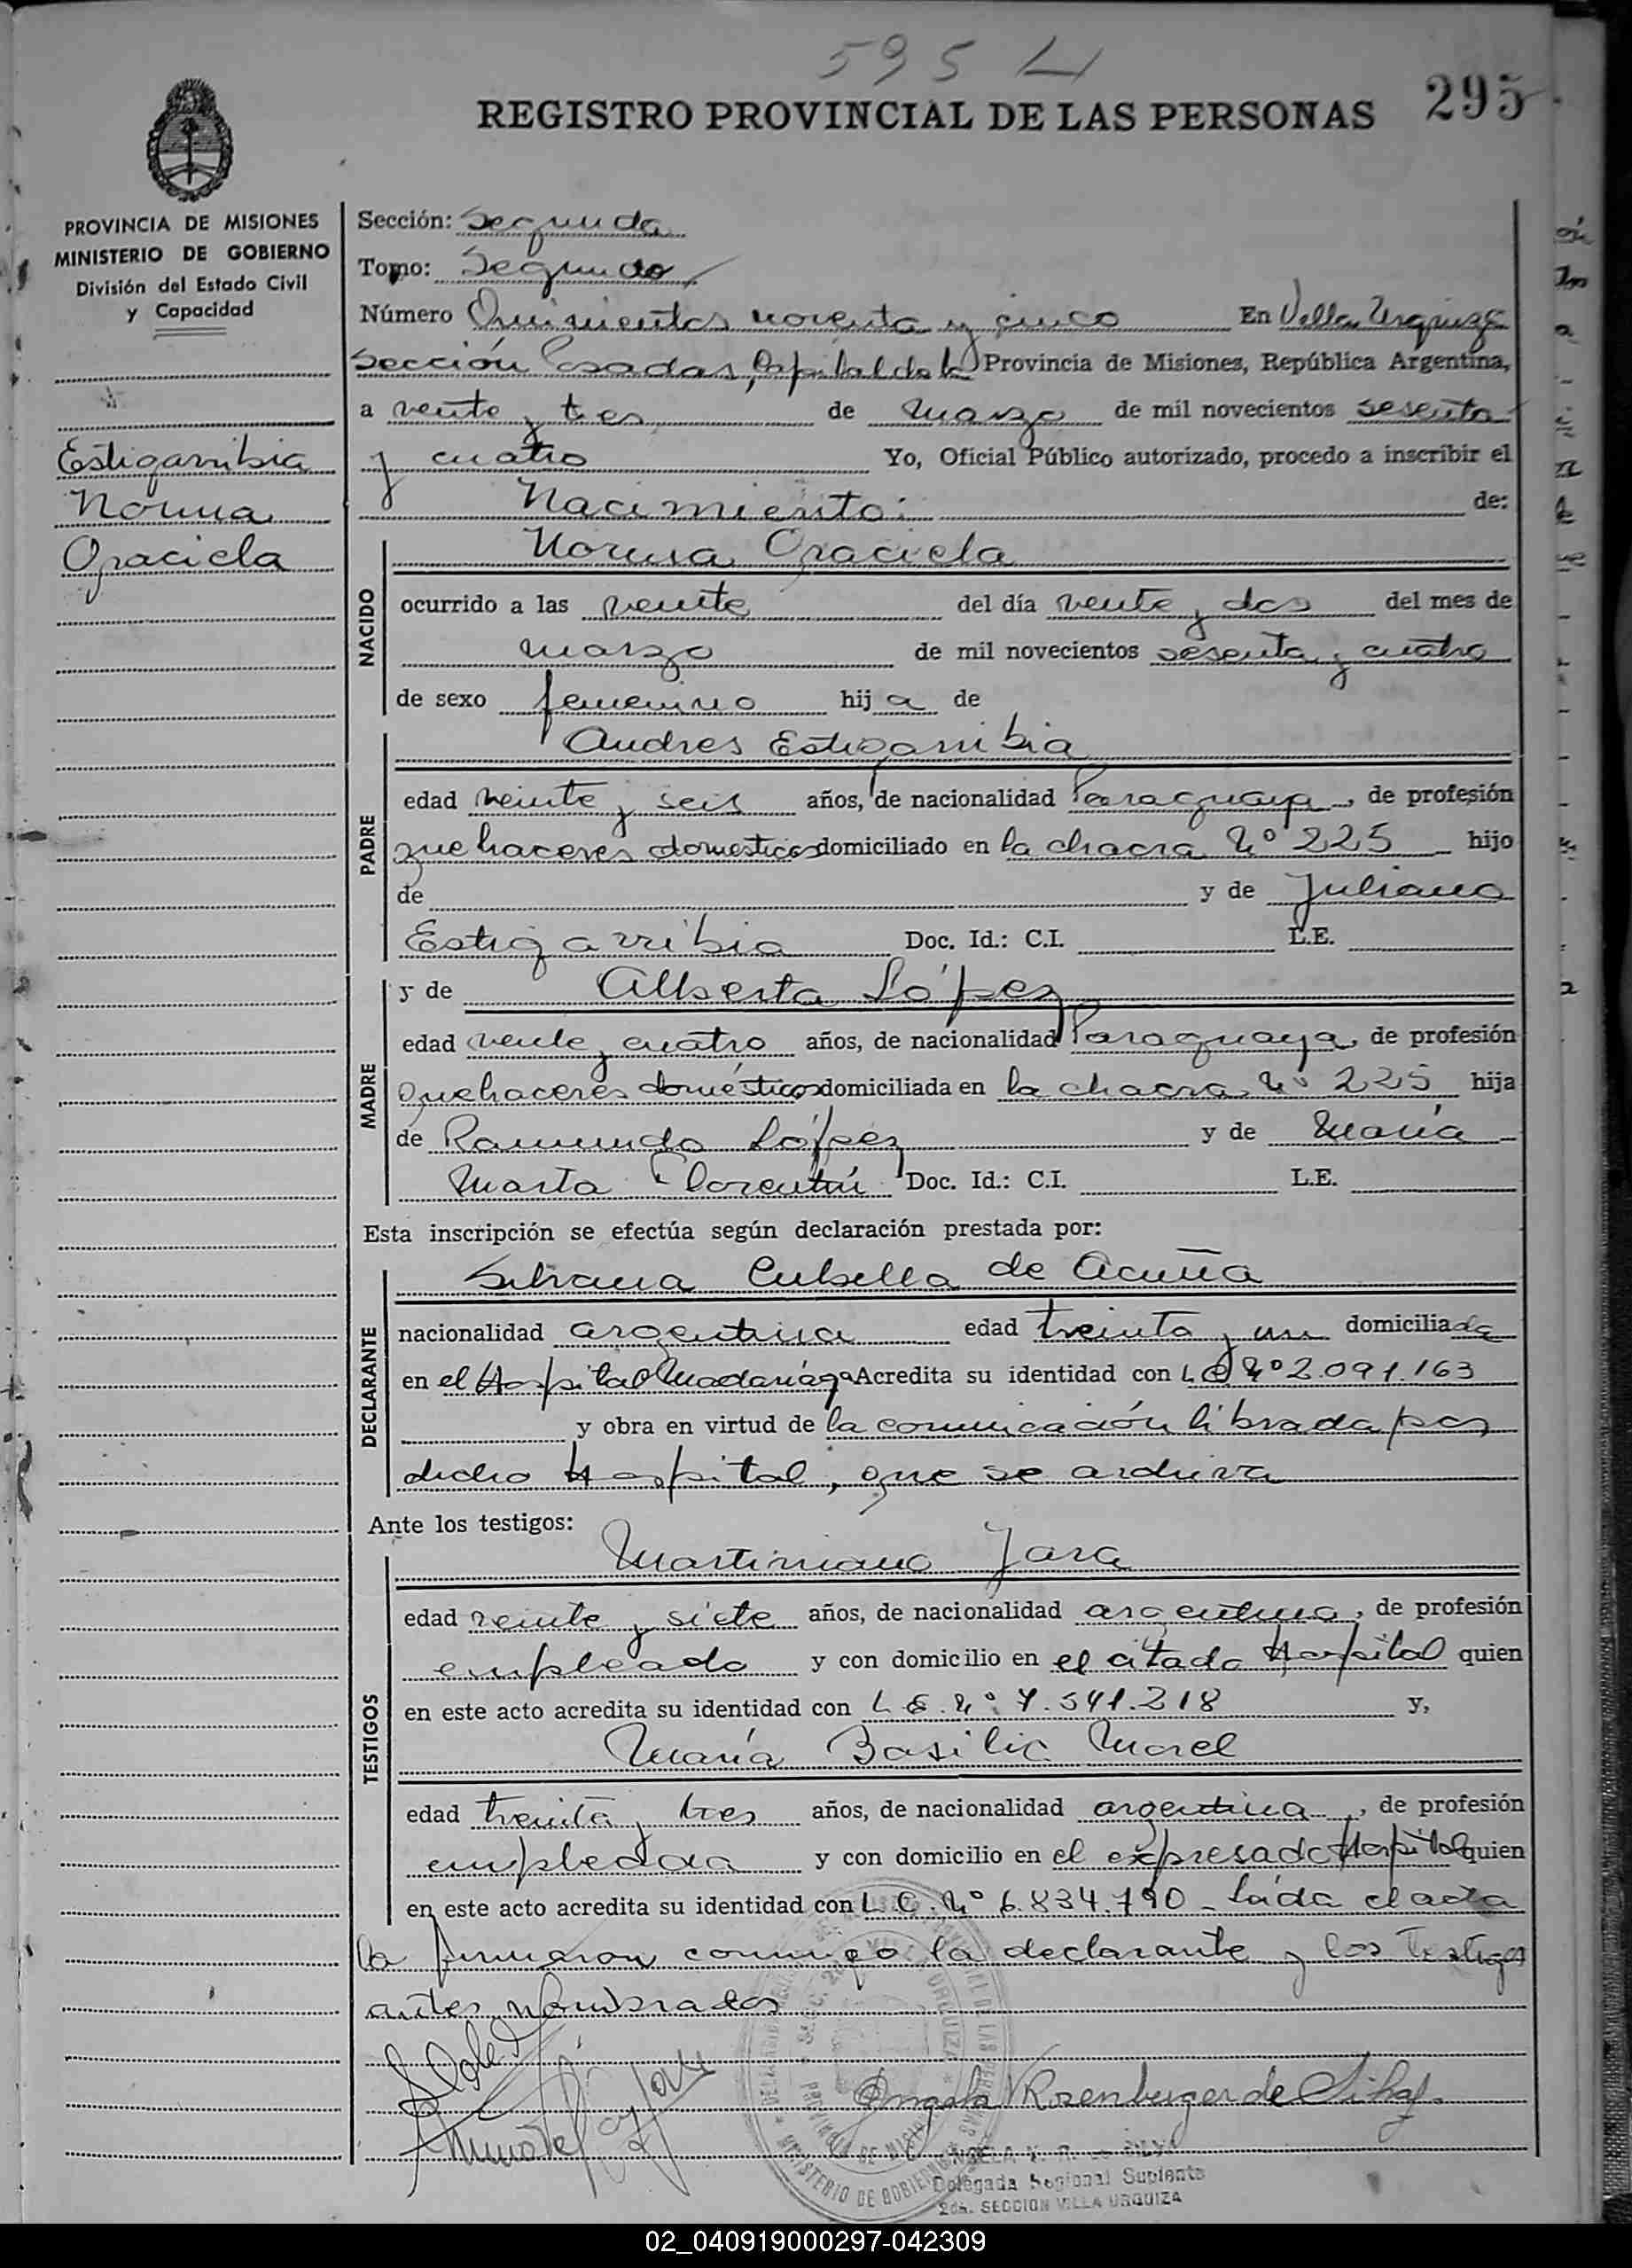 595 L
REGISTRO PROVINCIAL DE LAS PERSONAS 295
PROVINCIA DE MISIONES
MINISTERIO DE GOBIERNO
División del Estado Civil
y Capacidad
Estigarribia
Norma
Graciela
Sección: Segunda
Tomo: Segundo
Número Quinientos noventa y cinco En Villa Urquiza
Sección Posadas, Capital de la Provincia de Misiones, República Argentina,
a veinte y tres de marzo de mil novecientos sesenta
y cuatro Yo, Oficial Público autorizado, procedo a inscribir el
Nacimiento: de:
NACIDO
Norma Graciela
ocurrido a las veinte del día veinte y dos del mes de
marzo de mil novecientos sesenta y cuatro
de sexo femenino hija de
PADRE
Andres Estigarribia
edad veinte y seis años, de nacionalidad Paraguaya, de profesión
quehaceres domesticos domiciliado en la chacra Nº 225 hijo
de y de Juliana
Estigarribia Doc. Id.: C.I. L.E.
MADRE
y de Alberta López
edad veinte y cuatro años, de nacionalidad Paraguaya, de profesión
quehaceres domésticos domiciliada en la chacra Nº 225 hija
de Ramundo López y de María
Marta Florentín Doc. Id.: C.I. L.E.
Esta inscripción se efectúa según declaración prestada por:
DECLARANTE
Silvana Cubella de Acuña
nacionalidad argentina edad treinta y un domiciliada
en el Hospital Madariaga Acredita su identidad con L C Nº 2.091.163
y obra en virtud de la comunicación librada por
dicho Hospital, que se archiva
Ante los testigos:
TESTIGOS
Martiniano Jara
edad veinte y siete años, de nacionalidad argentina, de profesión
empleado y con domicilio en el citado Hospital quien
en este acto acredita su identidad con L E. Nº 7.541.218 y,
María Basilia Morel
edad treinta y tres años, de nacionalidad argentina, de profesión
empleada y con domicilio en el expresado Hospital quien
en este acto acredita su identidad con L. C. Nº 6.834.790 - Leída el acta
la firmaron conmigo la declarante y los testigos
antes nombrados
Angela V Rozenberger de Silva
Delegada Regional Suplente
2da. SECCION VILLA URQUIZA
02_040919000297-042309